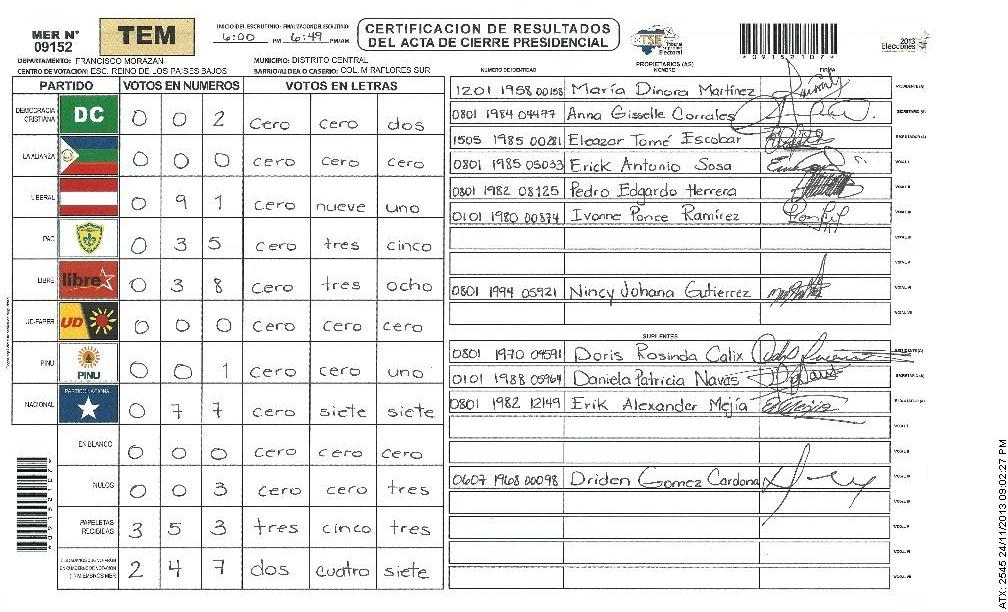 MER N° 09152
TEM
INICIO DEL ESCRUTINIO: FINALIZACION DEL ESCRUTINIO
6:00 PM 6:49 PM/AM
CERTIFICACION DE RESULTADOS
DEL ACTA DE CIERRE PRESIDENCIAL
TSE Tribunal Supremo Electoral
2013
Elecciones
*09152107*
DEPARTAMENTO: FRANCISCO MORAZAN
MUNICIPIO: DISTRITO CENTRAL
CENTRO DE VOTACION: ESC. REINO DE LOS PAISES BAJOS
BARRIO/ALDEA O CASERIO: COL. MIRAFLORES SUR
PROPIETARIOS (AS)
NUMERO DE IDENTIDAD NOMBRE FIRMA
PARTIDO VOTOS EN NUMEROS VOTOS EN LETRAS
DEMOCRACIA CRISTIANA DC 0 0 2 cero cero dos
LA ALIANZA 0 0 0 cero cero cero
LIBERAL 0 9 1 cero nueve uno
PAC 0 3 5 cero tres cinco
LIBRE libre 0 3 8 cero tres ocho
UD-FAPER UD 0 0 0 cero cero cero
PINU PINU 0 0 1 cero cero uno
NACIONAL PARTIDO NACIONAL 0 7 7 cero siete siete
EN BLANCO 0 0 0 cero cero cero
NULOS 0 0 3 cero cero tres
PAPELETAS RECIBIDAS 3 5 3 tres cinco tres
CIUDADANOS QUE VOTARON EN CUADERNO DE VOTACION (+) MIEMBROS MER 2 4 7 dos cuatro siete
1201 1958 00158 María Dinora Martínez PRESIDENTE(A)
0801 1984 04477 Anna Gisselle Corrales SECRETARIO(A)
1505 1985 00281 Eleazar Tomé Escobar ESCRUTADOR(A)
0801 1985 05033 Erick Antonio Sosa VOCAL I
0801 1982 08125 Pedro Edgardo Herrera VOCAL II
0101 1980 00874 Ivonne Ponce Ramírez VOCAL III
VOCAL IV
VOCAL V
0801 1994 05921 Nincy Johana Gutierrez VOCAL VI
VOCAL VII
SUPLENTES
0801 1970 09591 Doris Rosinda Calix PRESIDENTE(A)
0101 1988 05964 Daniela Patricia Navas SECRETARIO(A)
0801 1982 12149 Erik Alexander Mejía ESCRUTADOR(A)
VOCAL I
VOCAL II
0607 1968 00098 Driden Gomez Cardona VOCAL III
VOCAL IV
VOCAL V
VOCAL VI
VOCAL VII
*09152107*
ATX: 2545 24/11/2013 09:02:27 PM